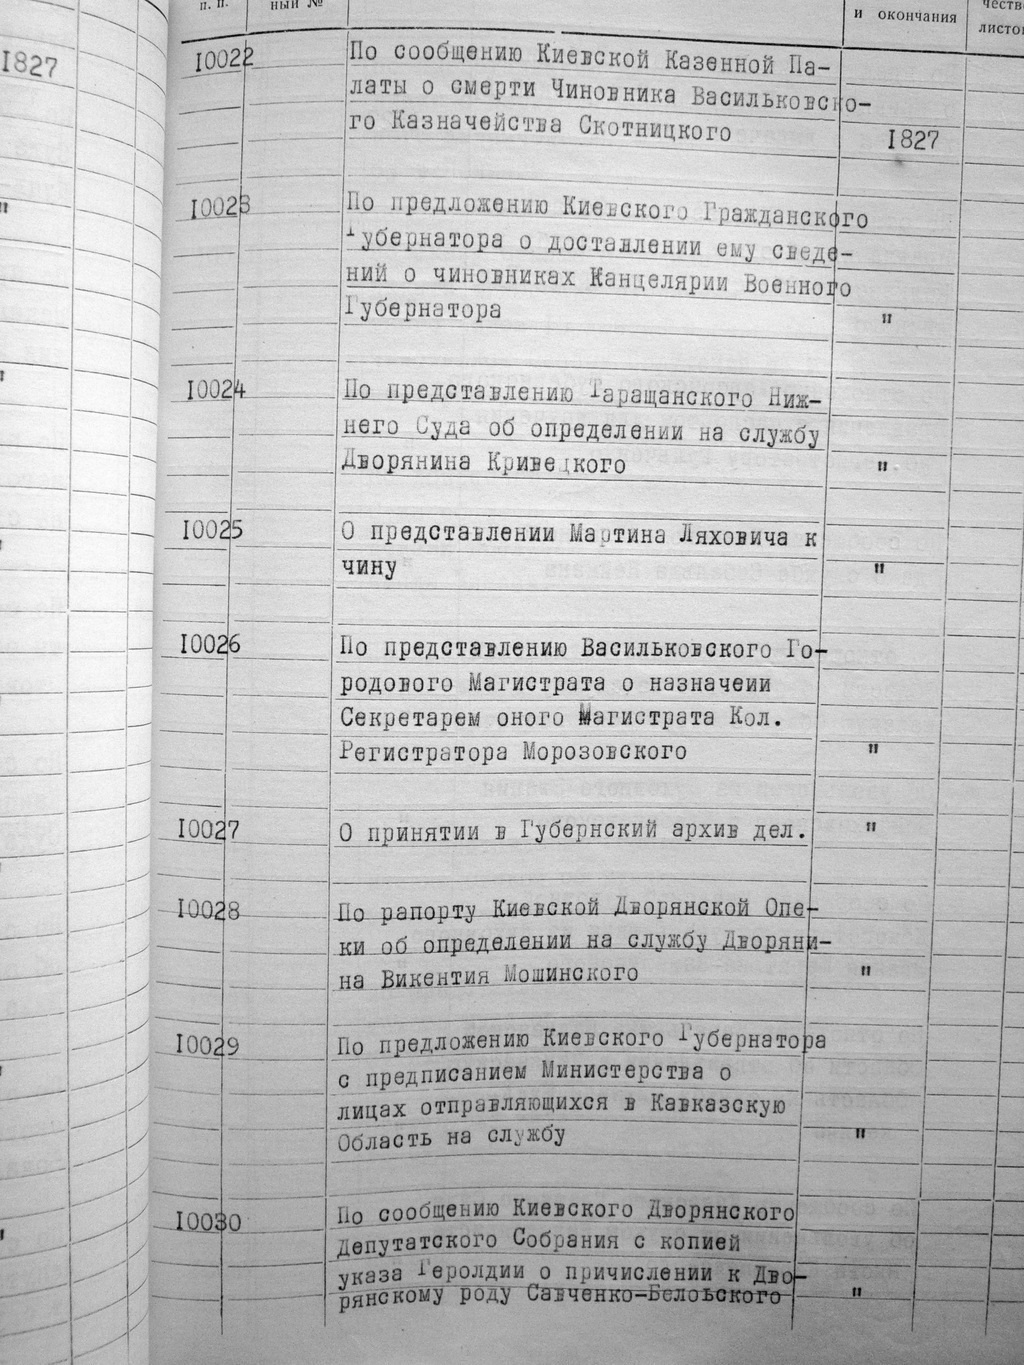 п. п.
ный №
и окончания
листов
1827
"
I0022
По сообщению Киевской Казенной Па-
латы о смерти Чиновника Васильковско-
го Казначейства Скотницкого
I827
I0023
По предложению Киевского Гражданского
Губернатора о доставлении ему сведе-
ний о чиновниках Канцелярии Военного
Губернатора
"
I0024
По представлению Таращанского Ниж-
него Суда об определении на службу
Дворянина Кривецкого
"
I0025
О представлении Мартина Ляховича к
чину
"
I0026
По представлению Васильковского Го-
родового Магистрата о назначеии
Секретарем оного Магистрата Кол.
Регистратора Морозовского
"
I0027
О принятии в Губернский архив дел.
"
I0028
По рапорту Киевской Дворянской Опе-
ки об определении на службу Дворяни-
на Викентия Мошинского
"
I0029
По предложению Киевского Губернатора
с предписанием Министерства о
лицах отправляющихся в Кавказскую
Область на службу
"
I0030
По сообщению Киевского Дворянского
Депутатского Собрания с копией
указа Геролдии о причислении к Дво-
рянскому роду Савченко-Бельского
"